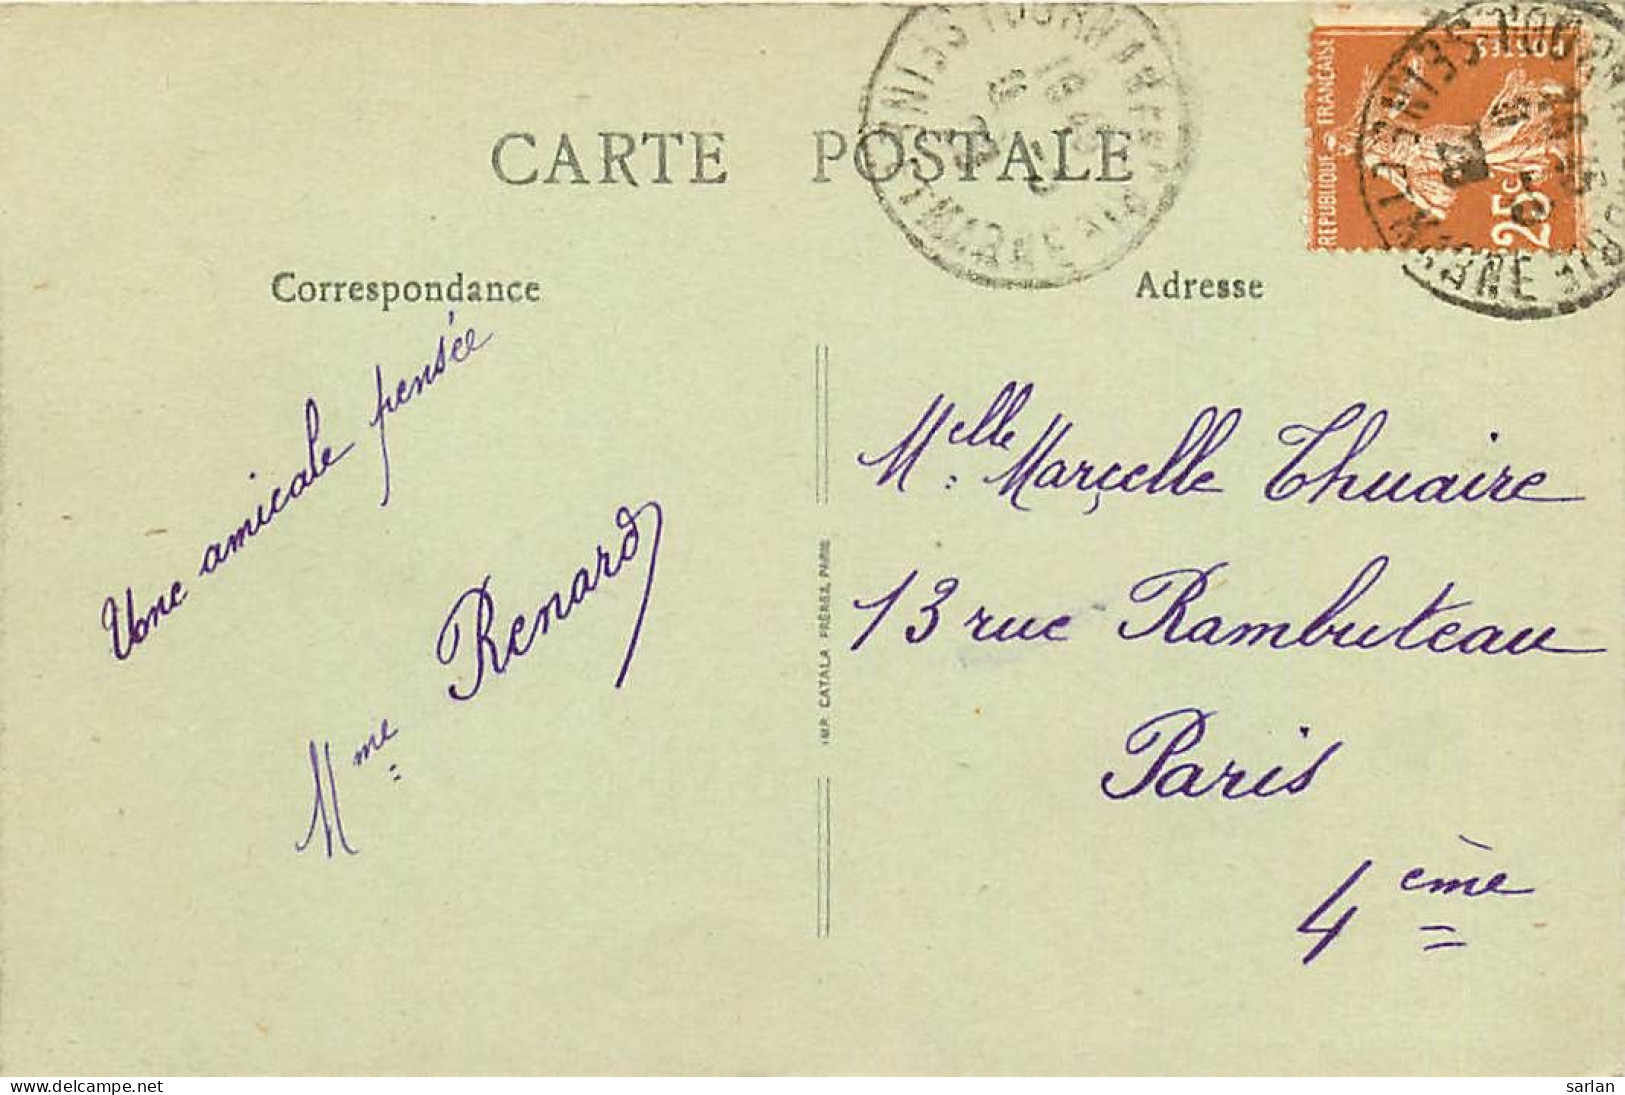 CARTE POSTALE
Correspondance
Une amicale pensée
Mme Renard
IMP. CATALA FRÈRES, PARIS
Adresse
Melle Marcelle Thuaire
13 rue Rambuteau
Paris
4ème
REPUBLIQUE FRANÇAISE
POSTES
25c
SEINE ET MARNE
sarlan
www.delcampe.net